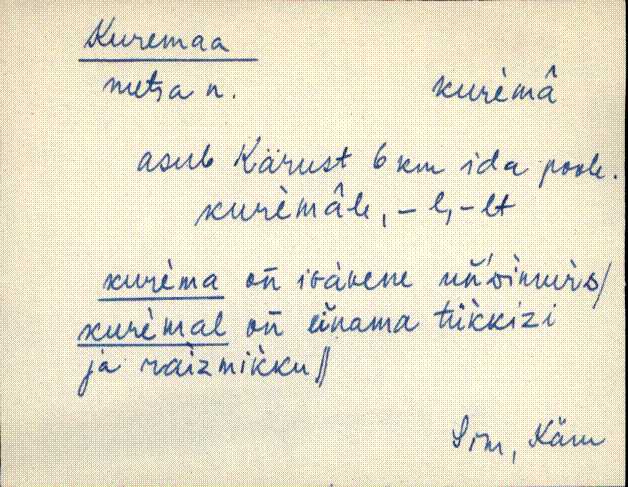 Kuremaa
metsa n. kurèmâ
asub Kärust 6 km ida poole.
kurèmâle, -l, -lt
kurèma on̄
kurèmal on̄ einama tükkizi
ja
Sim, Käru